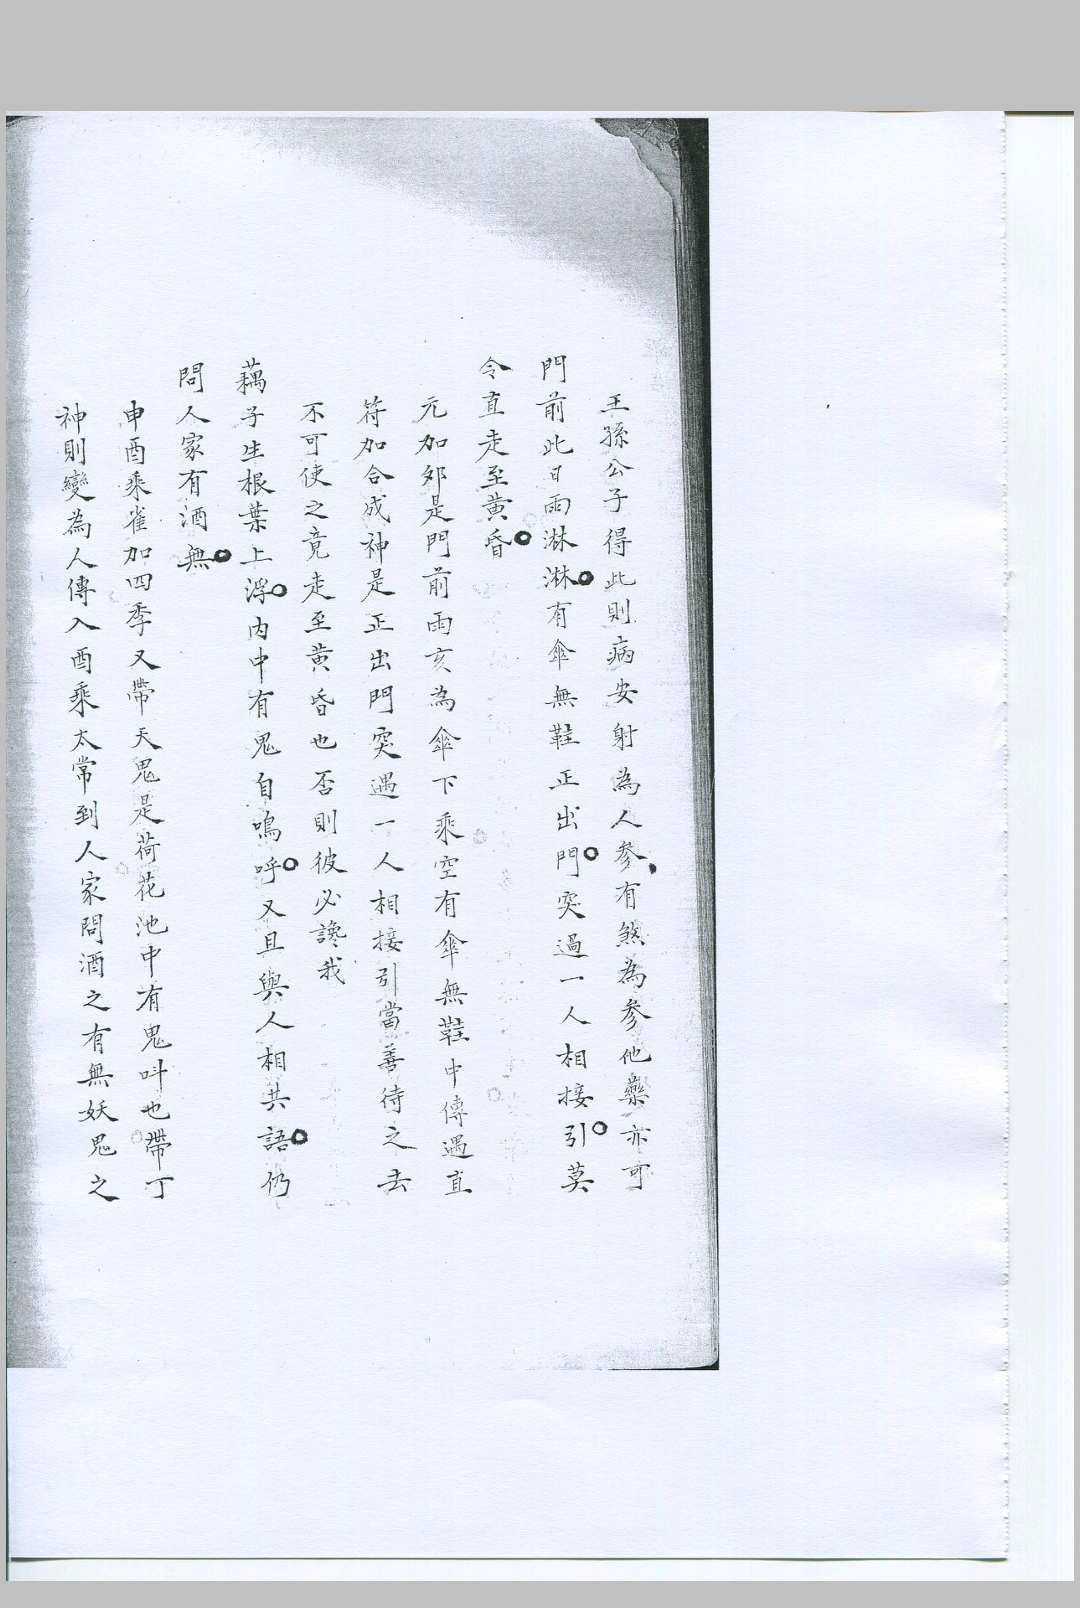 王孫公子得此則病安射為人參有煞為參他藥亦可
門前此日雨淋淋。有傘無鞋正出門。突過一人相接引。莫
令直走至黃昏。
元加夘是門前雨亥為傘下乘空有傘無鞋中傳遇直
符加合成神是正出門突遇一人相接引當善待之去
不可使之竟走至黃昏也否則彼必讒我
藕子生根葉上浮。內中有鬼自鳴呼。又且與人相共語。仍
問人家有酒無。
申酉乘雀加四季又帶天鬼是荷花池中有鬼叫也帶丁
神則變為人傳入酉乘太常到人家問酒之有無妖鬼之